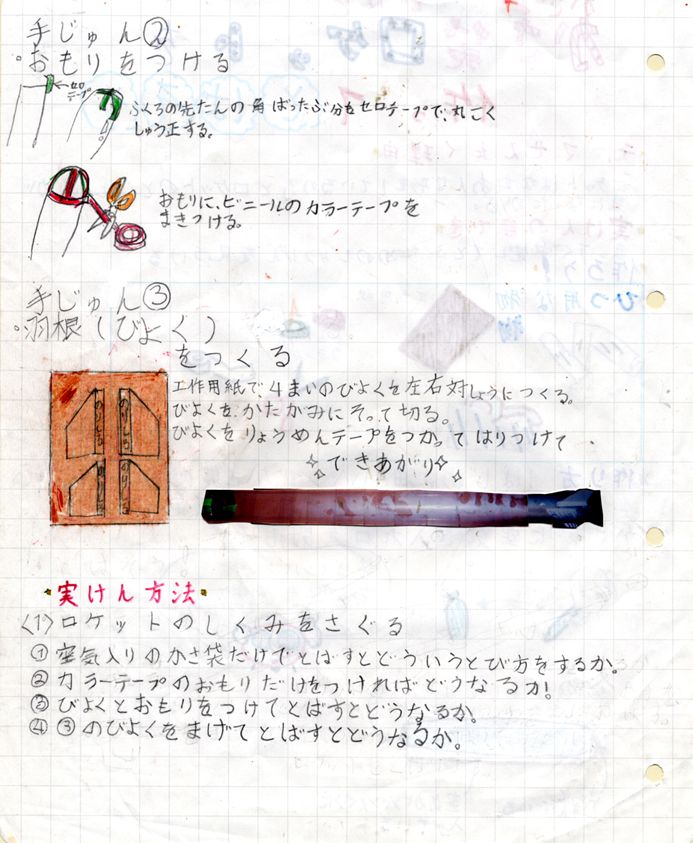 手じゅん②
・おもりをつける
←セロ
テープ
ふくろの先たんの角ばったぶ分をセロテープで、丸ごく
しゅう正する。
おもりに、ビニールのカラーテープを
まきつける。
手じゅん③
・羽根(びよく)
をつくる
工作用紙で、4まいのびよくを左右対しょうにつくる。
びよくを、かたがみにそって切る。
びよくをりょうめんテープをつかってはりつけて・
できあがり
のりしろ
のりしろ
のりしろ
のりしろ
・実けん方法・
〈1〉ロケットのしくみをさぐる
①空気入りのかさ袋だけでとばすとどういうとび方をするか。
②カラーテープのおもりだけをつければどうなるか!
③びよくとおもりをつけてとばすとどうなるか。
④③のびよくをまげてとばすとどうなるか。